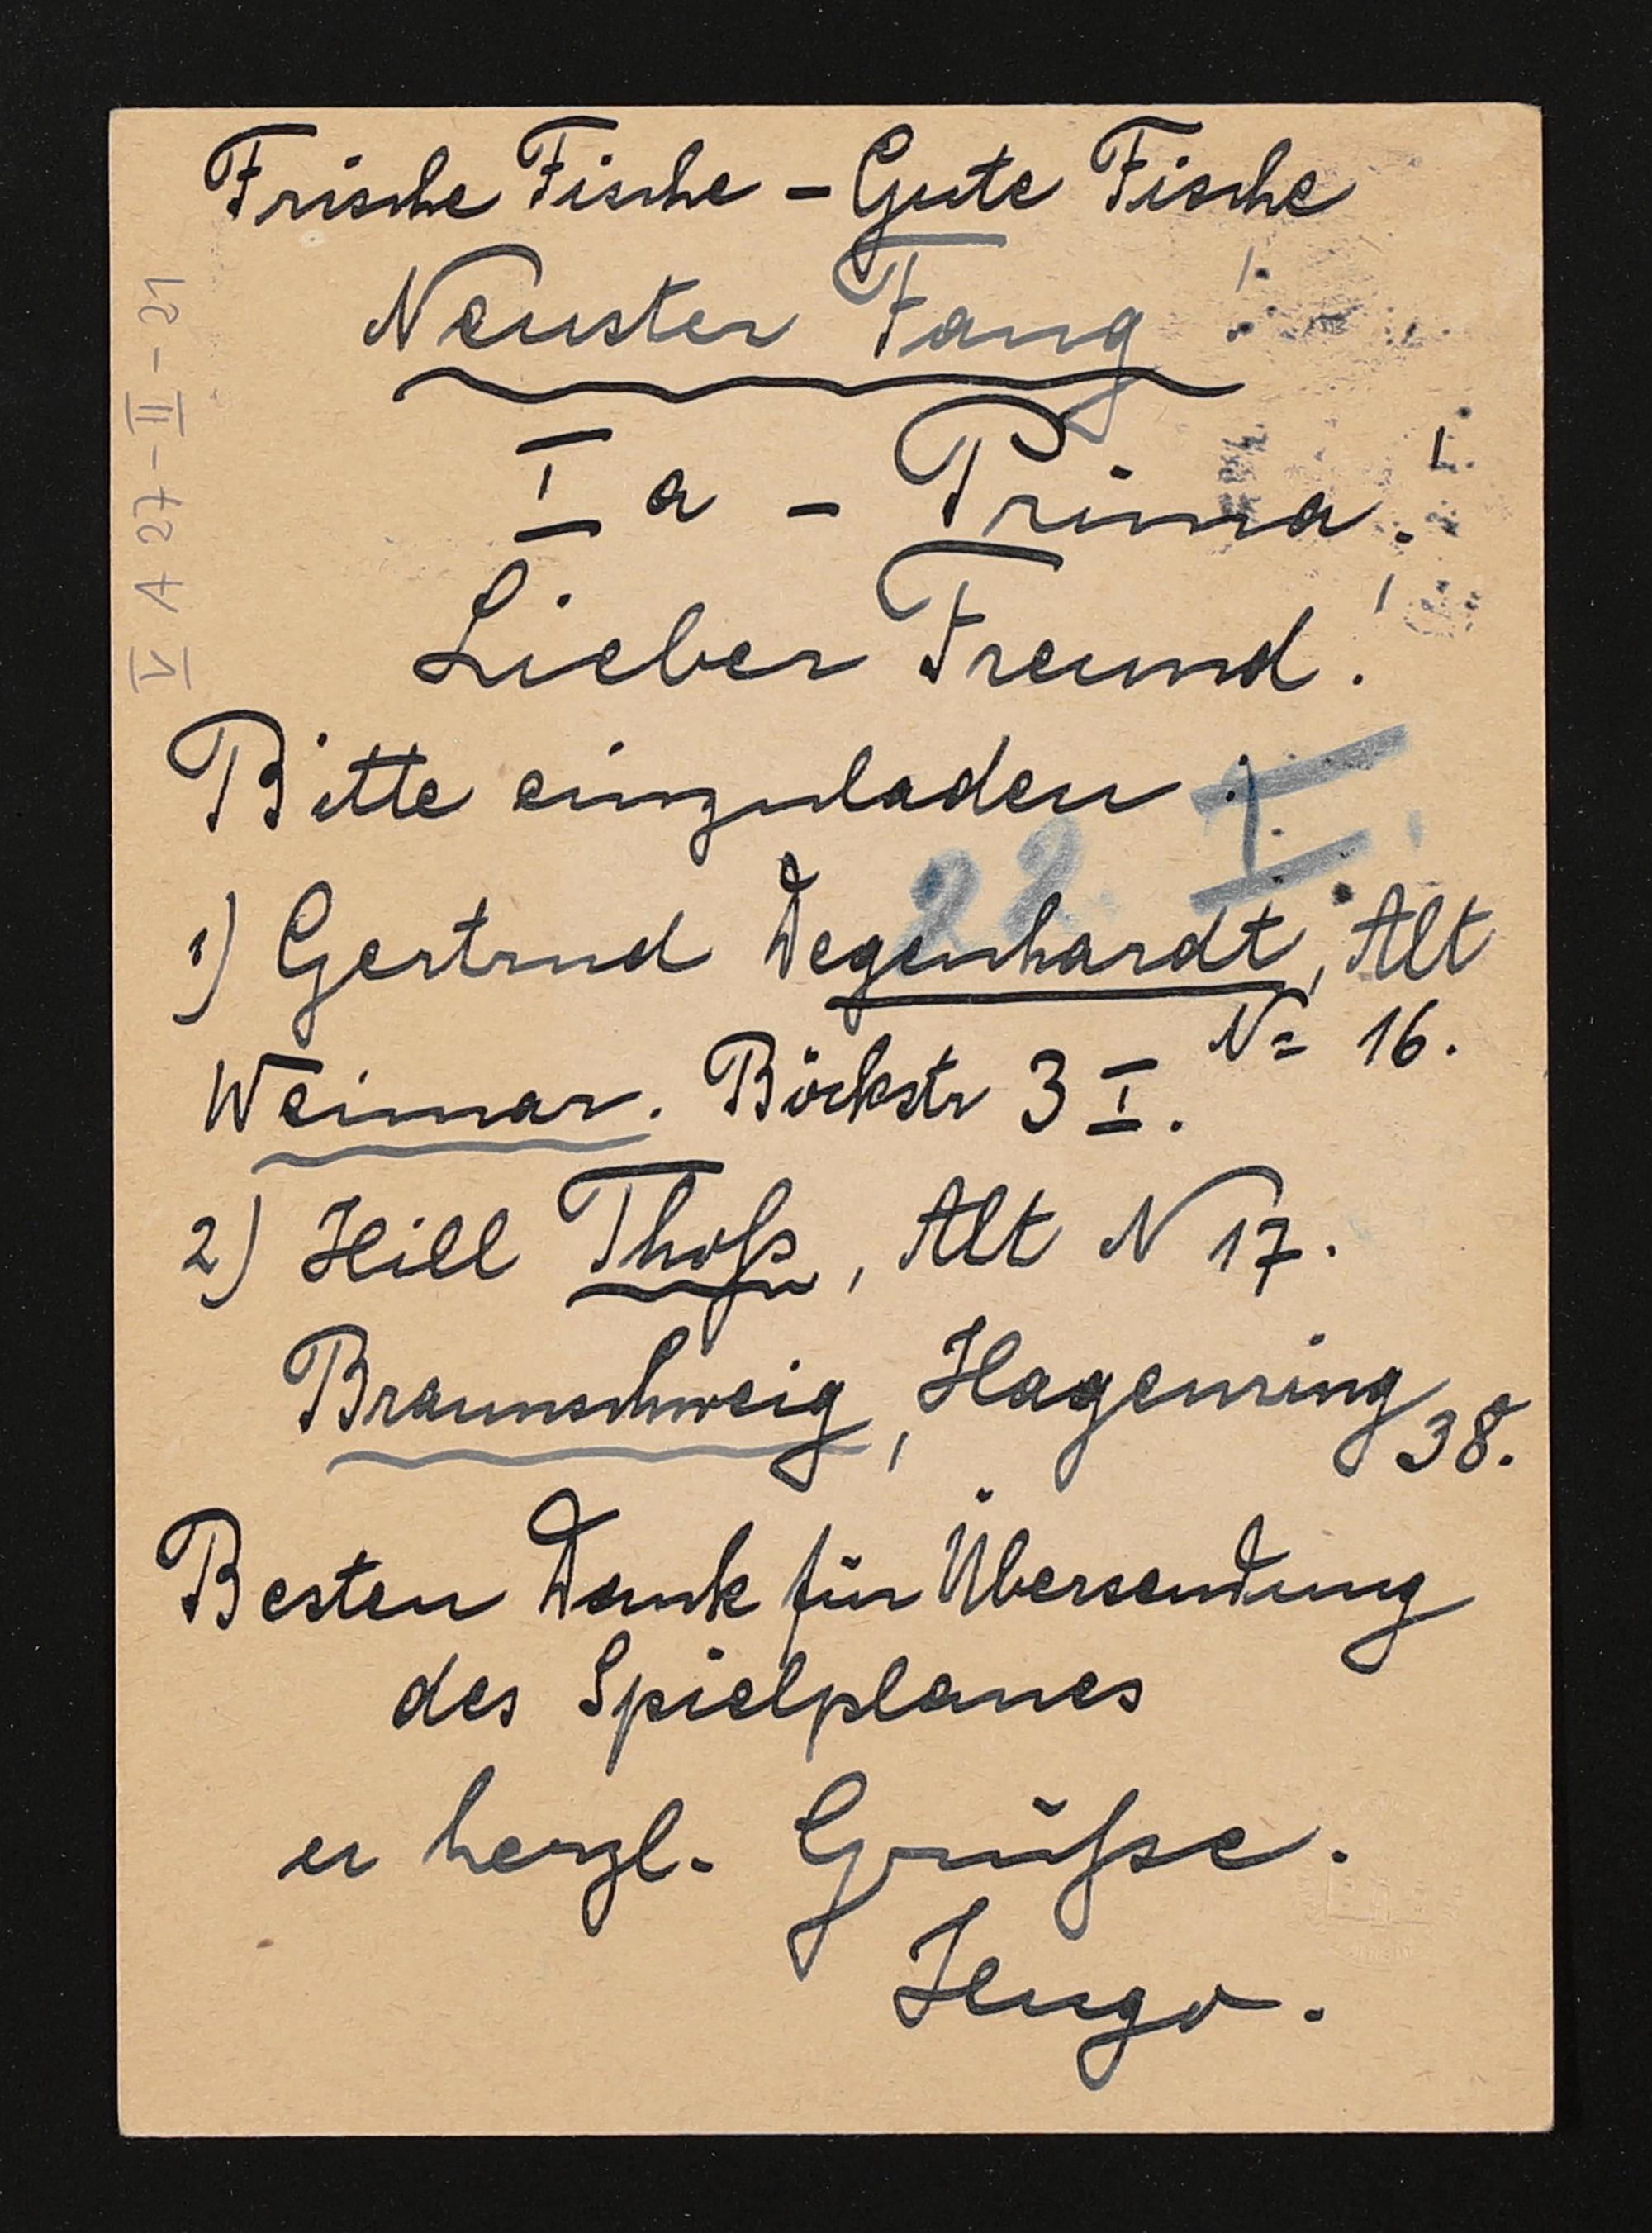 Frische Fische – Gute Fische
Neuster Fang!
Ia – Prima!
Lieber Freund!
Bitte einzuladen:
22. I.
1) Gertrud Degenhardt, Alt
N= 16.
Weimar. Böckstr 3 I.
2) Hill Thoß, Alt N 17.
Braunschweig, Hagenring 38.
Besten Dank für Übersendung
des Spielplanes
u herzl. Grüße.
Hugo.
V A 27-II-21